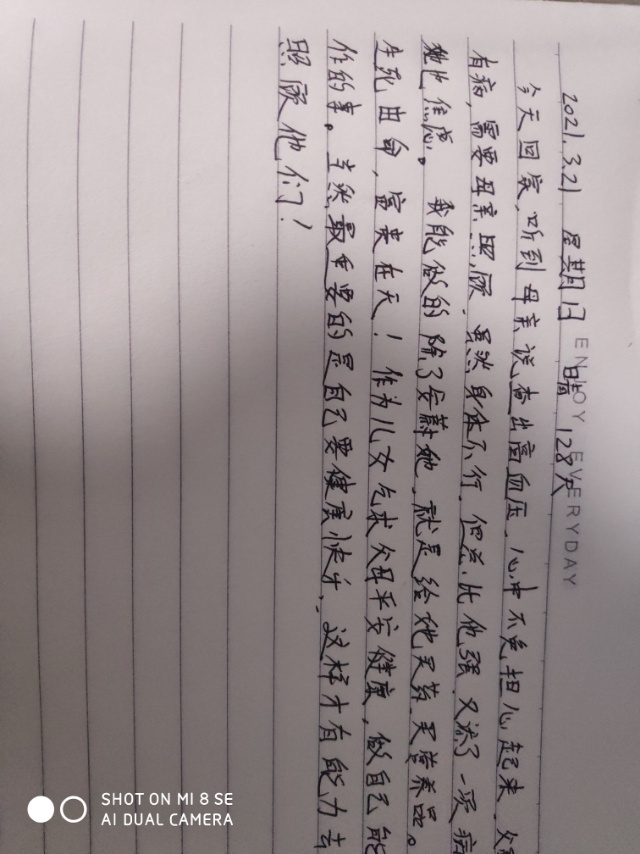 ENJOY EVERYDAY
2021.3.21 星期日 晴 128天
今天回家,听到母亲说查出高血压,心中不免担心起来,父亲
有病,需要母亲照顾,虽然身体不行,但总比他强,又添了一项病
她也焦虑。我能做的除了安慰她,就是给她买药买营养品。
生死由命,富贵在天!作为儿女乞求父母平安健康,做自己能
作的事。当然最重要的是自己要健康快乐,这样才有能力去
照顾他们!
SHOT ON MI 8 SE
AI DUAL CAMERA